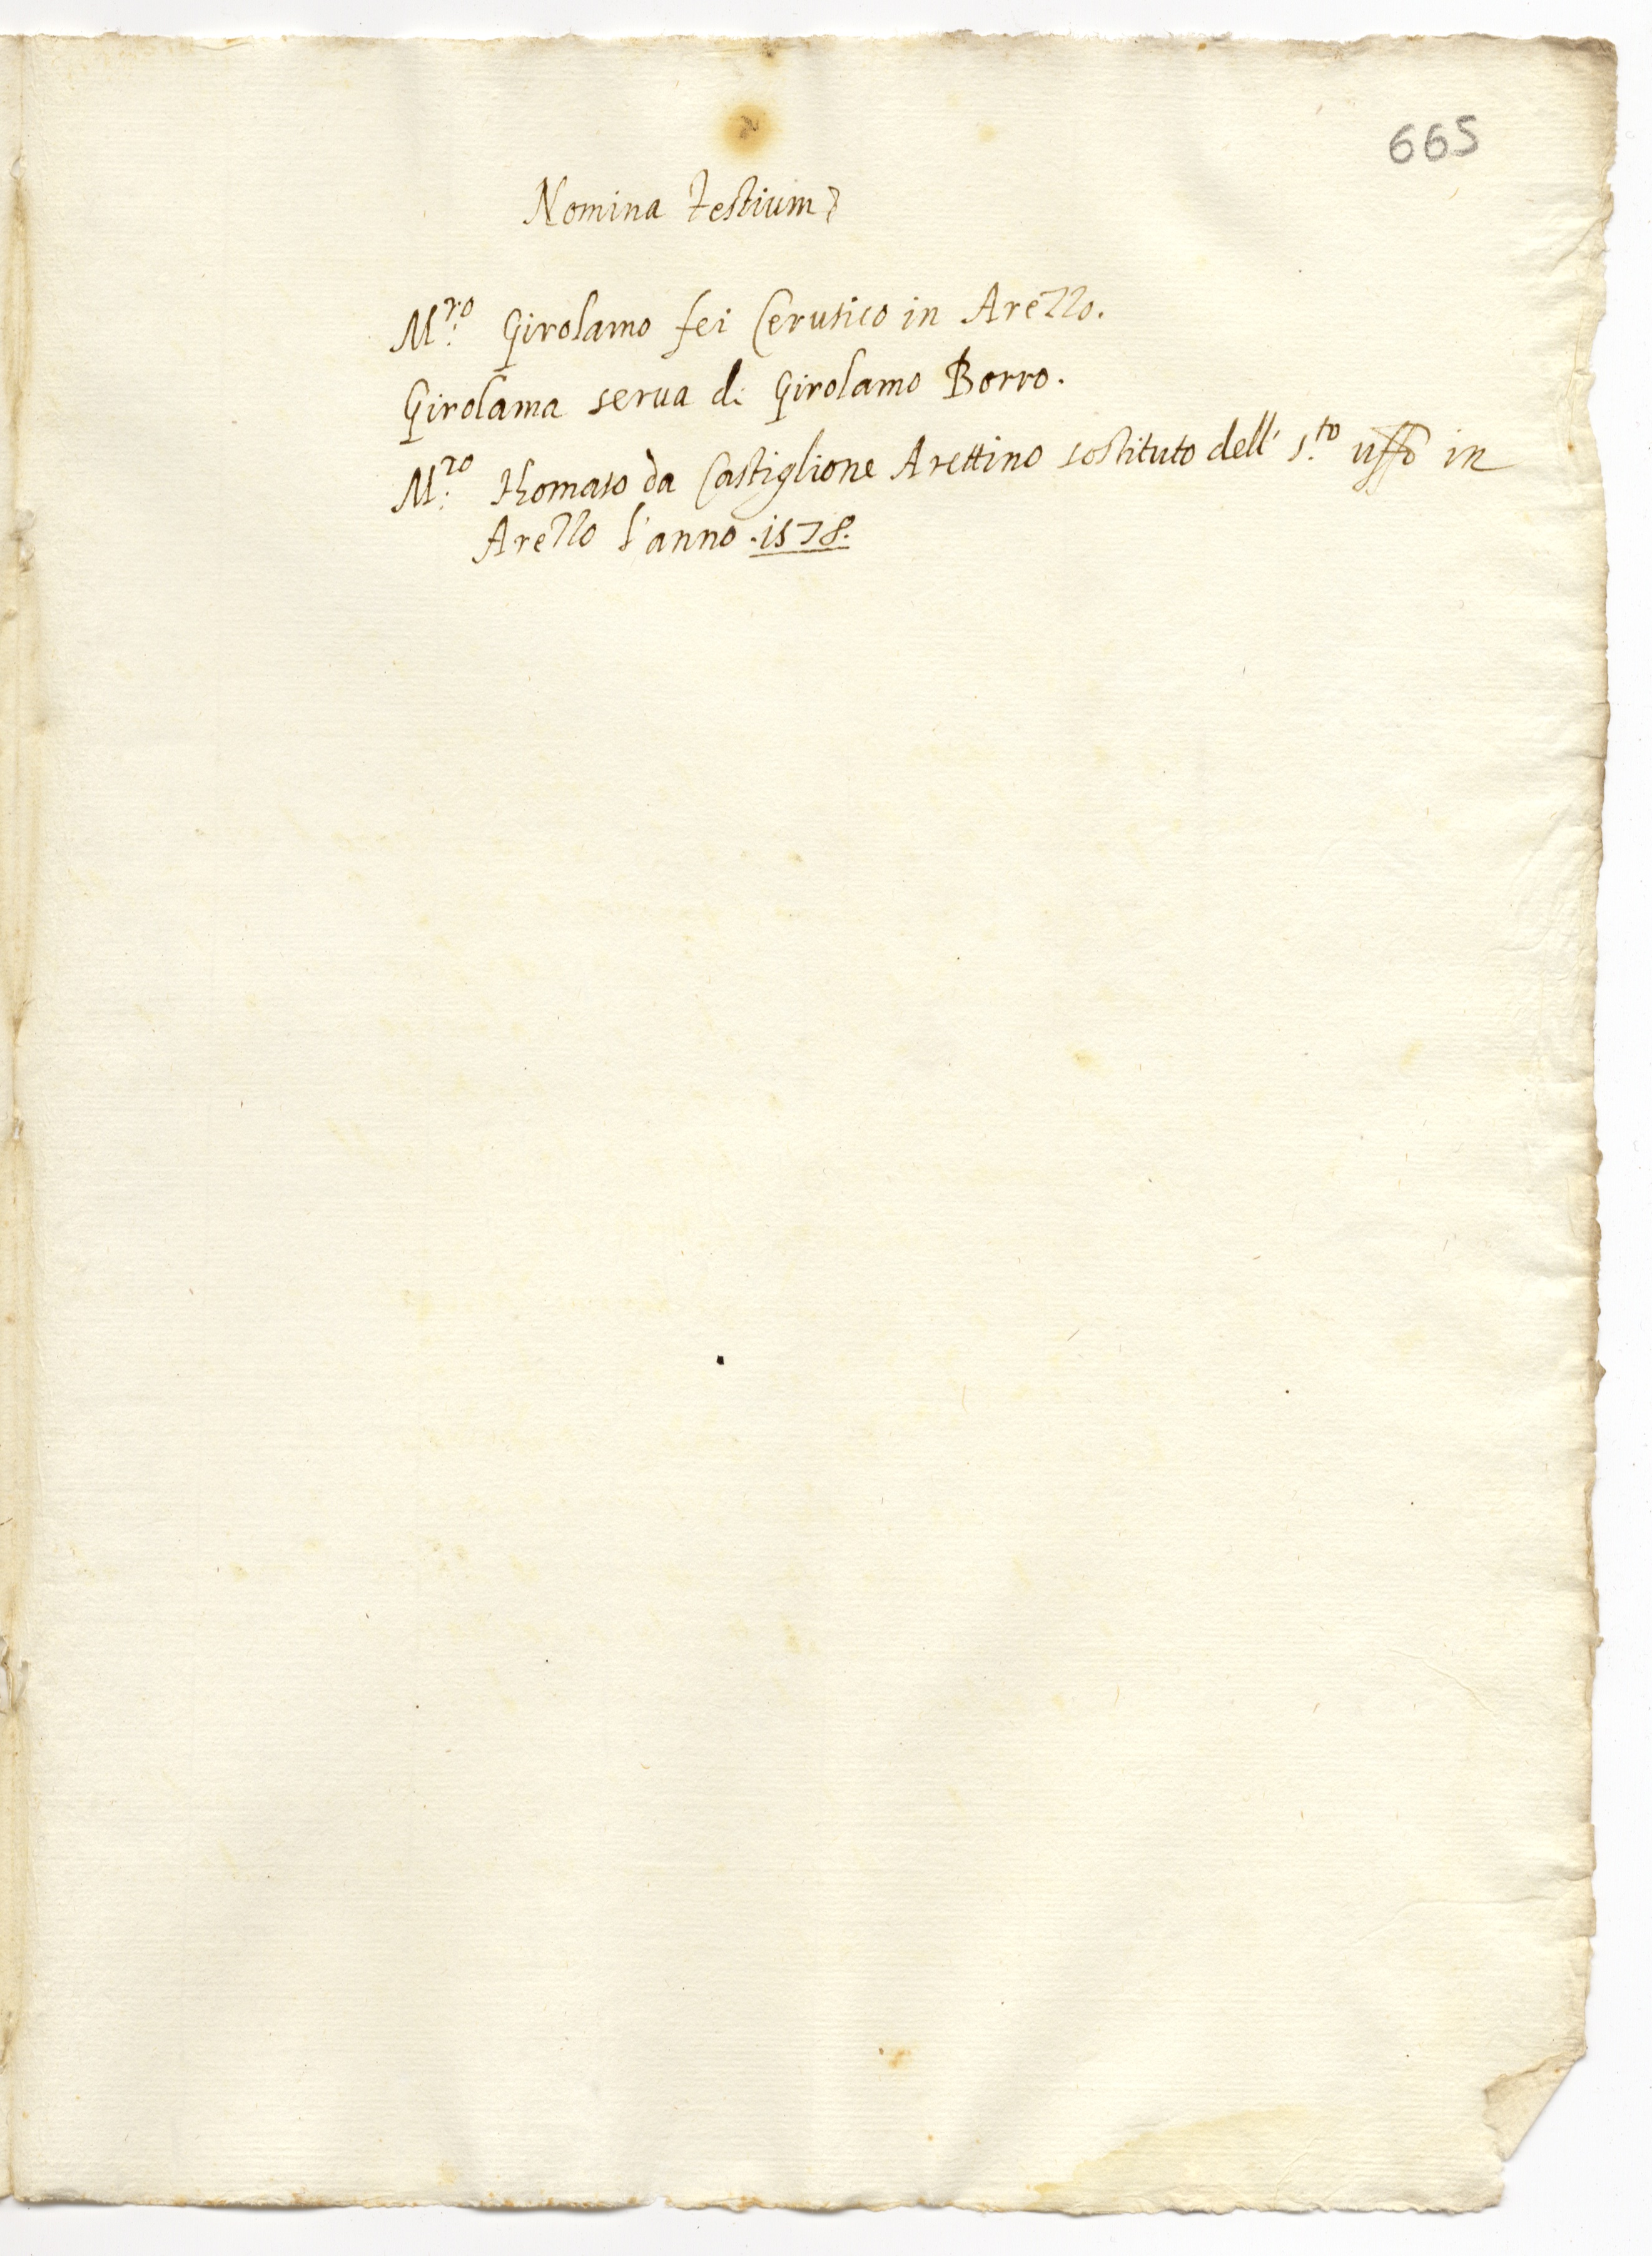 665
Nomina testium
M.ro Girolamo fei Cerusico in Arezzo.
Girolama serua di Girolamo Borro.
M.ro Thomaso da Castiglione Arettino sostituto dell' s.to uffo in
Arezzo l'anno .1578.